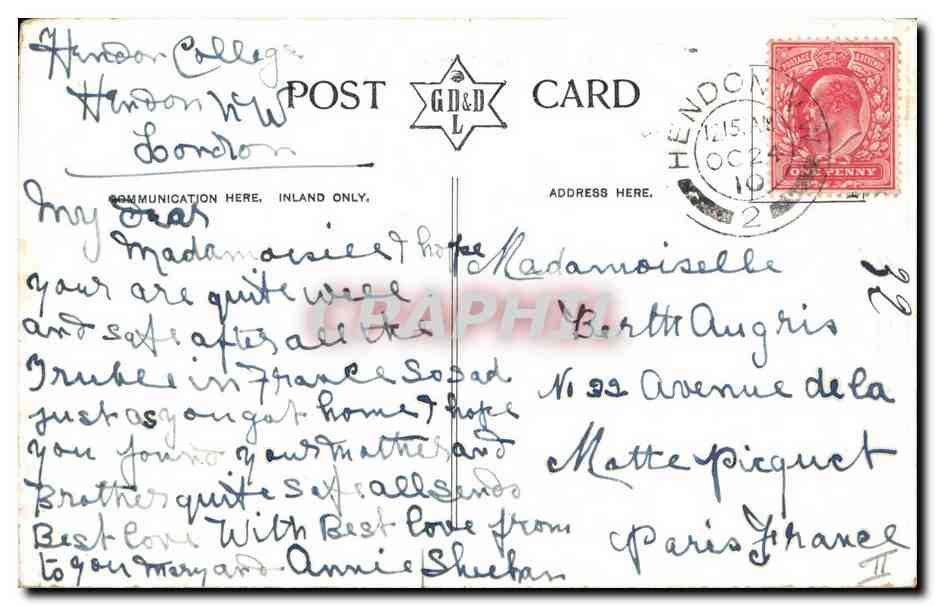 Hendon College
Hendon N W
London
POST CARD
G D&D L
COMMUNICATION HERE, INLAND ONLY.
ADDRESS HERE.
HENDON N.W.
12.15. AM
OC 24
10
2
POSTAGE REVENUE
ONE PENNY
My Dear
Madamoisiell I hope
your are quite well
and safe after all the
Truble in France So Sad
just as you got home I hope
you found your Mother and
Brother quite Safe all Sends
Best love With Best love from
to you Mery and Annie Sheehan
Madamoiselle
Berth Augris
No 22 Avenue de la
Motte picquet
Paris France
22
II
CRAPHIL